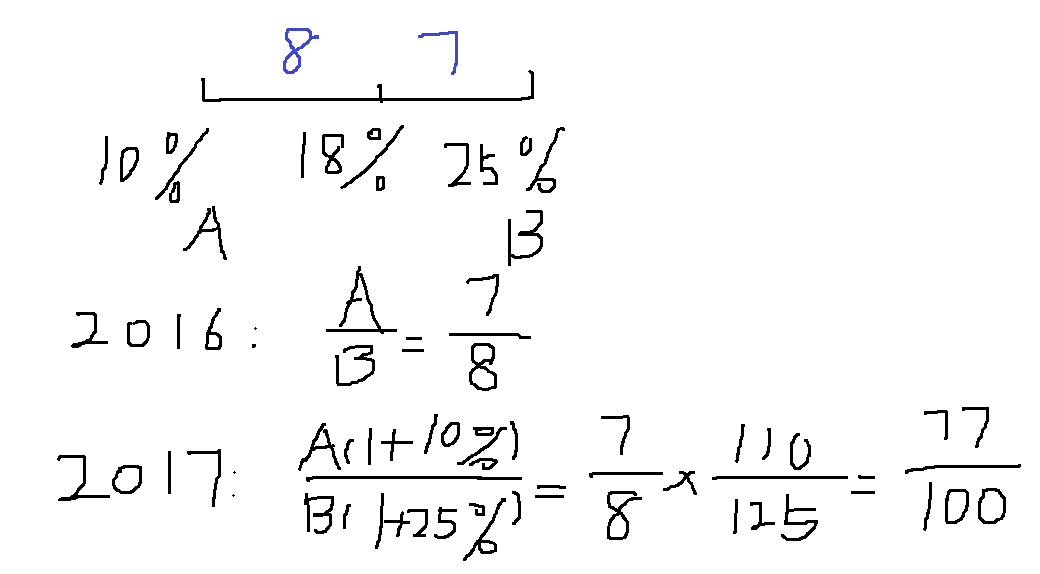 8 7
10% 18% 25%
A B
2016: A/B = 7/8
2017: A(1+10%)/B(1+25%) = 7/8 × 110/125 = 77/100